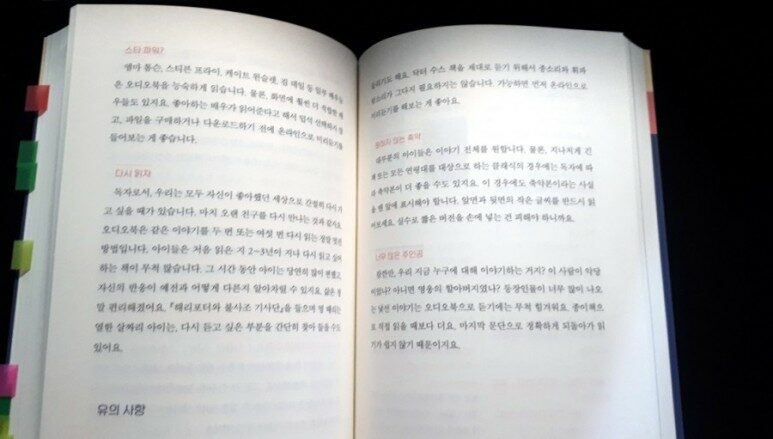 스타 파워?
엠마 톰슨, 스티븐 프라이, 케이트 윈슬렛, 짐 데일 등 일부 배우들
은 오디오북을 능숙하게 읽습니다. 물론, 화면에 훨씬 더 적합한 배
우들도 있지요. 좋아하는 배우가 읽어준다고 해서 덥석 선택하지 말
고, 파일을 구매하거나 다운로드하기 전에 온라인으로 미리듣기를
들어보는 게 좋습니다.
다시 읽자
독자로서, 우리는 모두 자신이 좋아했던 세상으로 간절히 다시 가
고 싶을 때가 있습니다. 마치 오랜 친구를 다시 만나는 것과 같지요.
오디오북은 같은 이야기를 두 번 또는 여섯 번 다시 읽는 정말 멋진
방법입니다. 아이들은 처음 읽은 지 2~3년이 지나 다시 읽고 싶어
하는 책이 무척 많습니다. 그 시간 동안 아이는 당연히 많이 변했고,
자신의 반응이 예전과 어떻게 다른지 알아차릴 수 있지요. 삶은 정
말 편리해졌어요. 『해리포터와 불사조 기사단』을 들으며 몇 해
열한 살짜리 아이는, 다시 듣고 싶은 부분을 간단히 찾아 들을 수도
있어요.
유의 사항
들리기도 해요. 닥터 수스 책을 제대로 듣기 위해서 종소리와 휘파
람소리가 그다지 필요하지는 않습니다. 가능하면 먼저 온라인으로
미리듣기를 해보는 게 좋아요.
원하지 않는 축약
대부분의 아이들은 이야기 전체를 원합니다. 물론, 지나치게 긴
책 또는 모든 연령대를 대상으로 하는 클래식의 경우에는 독자에 따
라 축약본이 더 좋을 수도 있지요. 이 경우에도 축약본이라는 사실
을 맨 앞에 표시해야 합니다. 앞면과 뒷면의 작은 글씨를 반드시 읽
어보세요. 실수로 짧은 버전을 손에 넣는 건 피해야 하니까요.
너무 많은 주인공
잠깐만, 우리 지금 누구에 대해 이야기하는 거지? 이 사람이 악당
이었나? 아니면 영웅의 할아버지였나? 등장인물이 너무 많이 나오
는 낯선 이야기는 오디오북으로 듣기에는 무척 힘겨워요. 종이책으
로 직접 읽을 때보다 더요. 마지막 문단으로 정확하게 되돌아가 읽
기가 쉽지 않기 때문이지요.